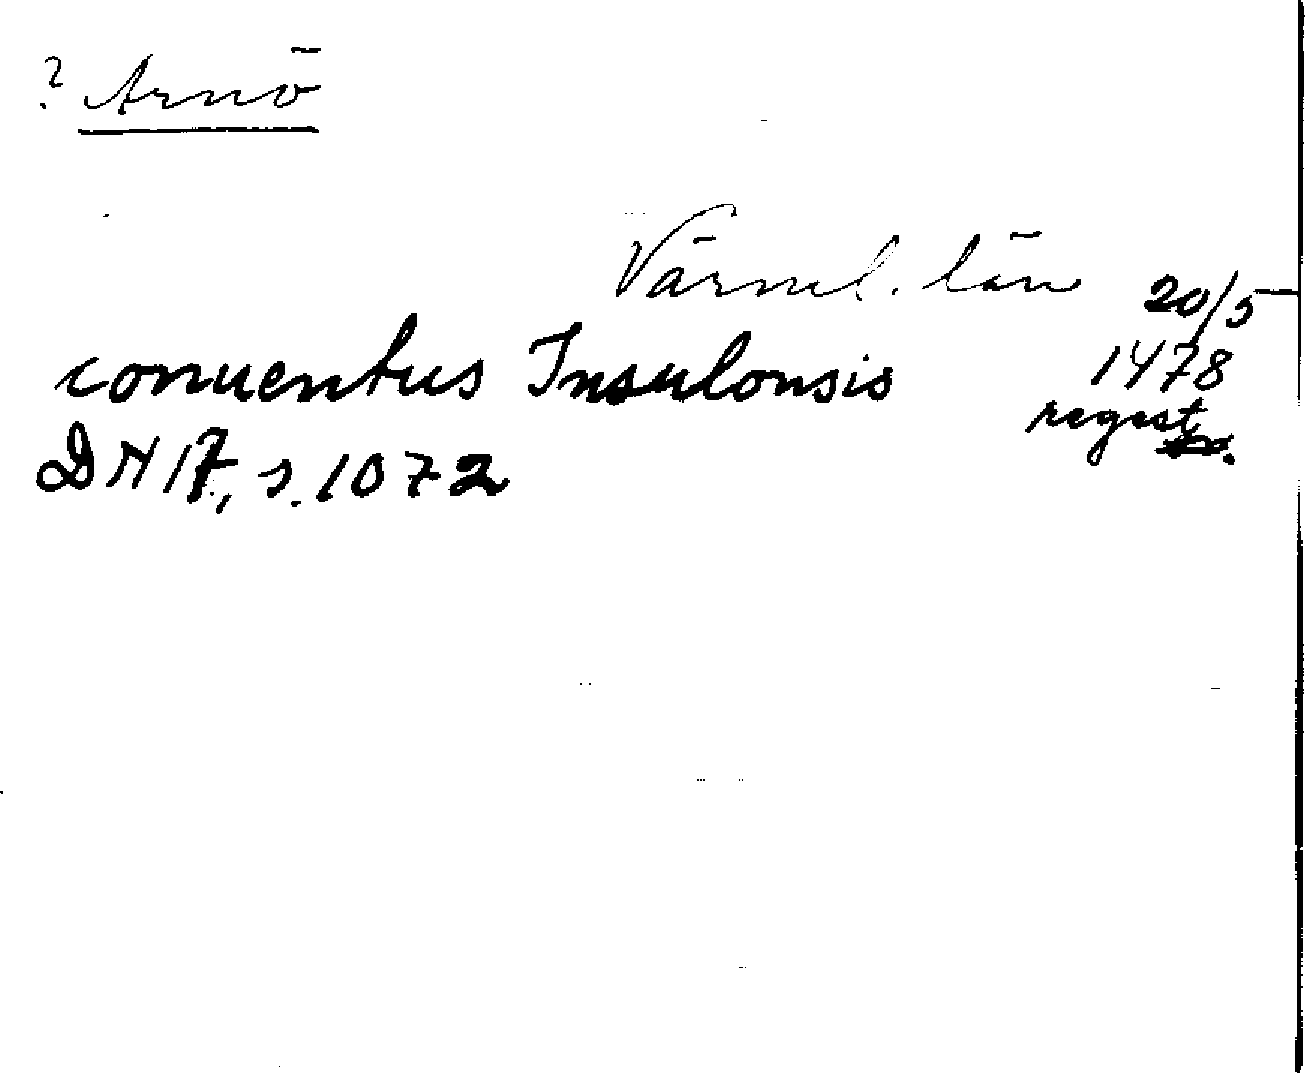 ? Arnö
Värml. län
20/5
conuentus Insulensis
1478
regest
DN 17, s. 1072